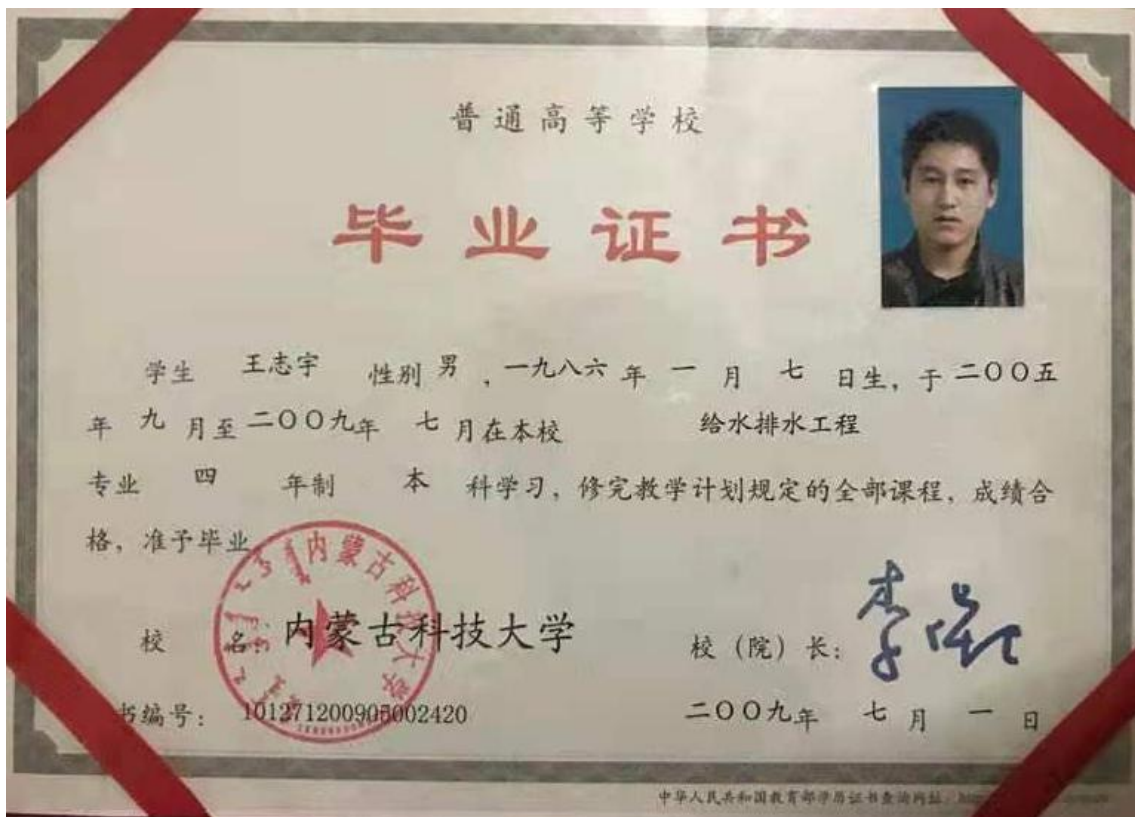 普通高等学校
毕业证书
学生 王志宇 性别 男 ，一九八六 年 一 月 七 日生，于 二〇〇五
年 九 月至 二〇〇九年 七 月在本校 给水排水工程
专业 四 年制 本 科学习，修完教学计划规定的全部课程，成绩合
格，准予毕业
内蒙古科技大学
校 名：内蒙古科技大学 校（院）长：
书编号： 101271200905002420 二〇〇九年 七 月 一 日
中华人民共和国教育部学历证书查询网址：